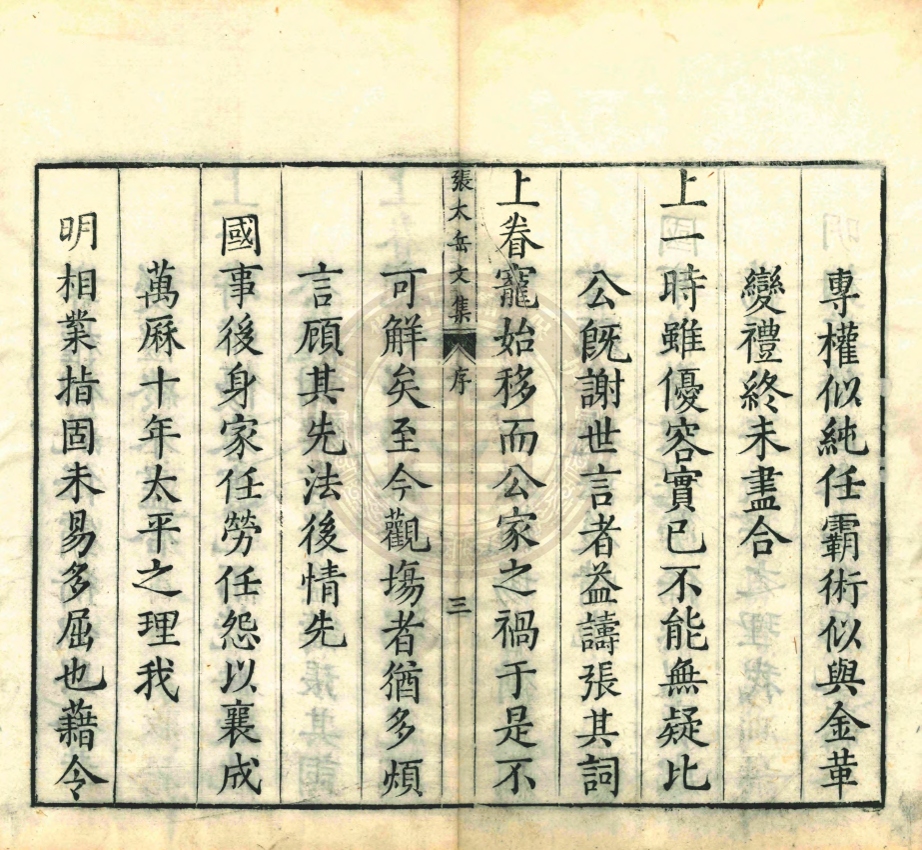 專權似純任霸術似與金革
變禮終未盡合
上一時雖優容實已不能無疑比
公旣謝世言者益譸張其詞
上眷寵始移而公家之禍于是不
張太岳文集 序 三
可解矣至今觀塲者猶多煩
言顧其先法後情先
國事後身家任勞任怨以襄成
萬厤十年太平之理我
明相業指固未易多屈也藉令